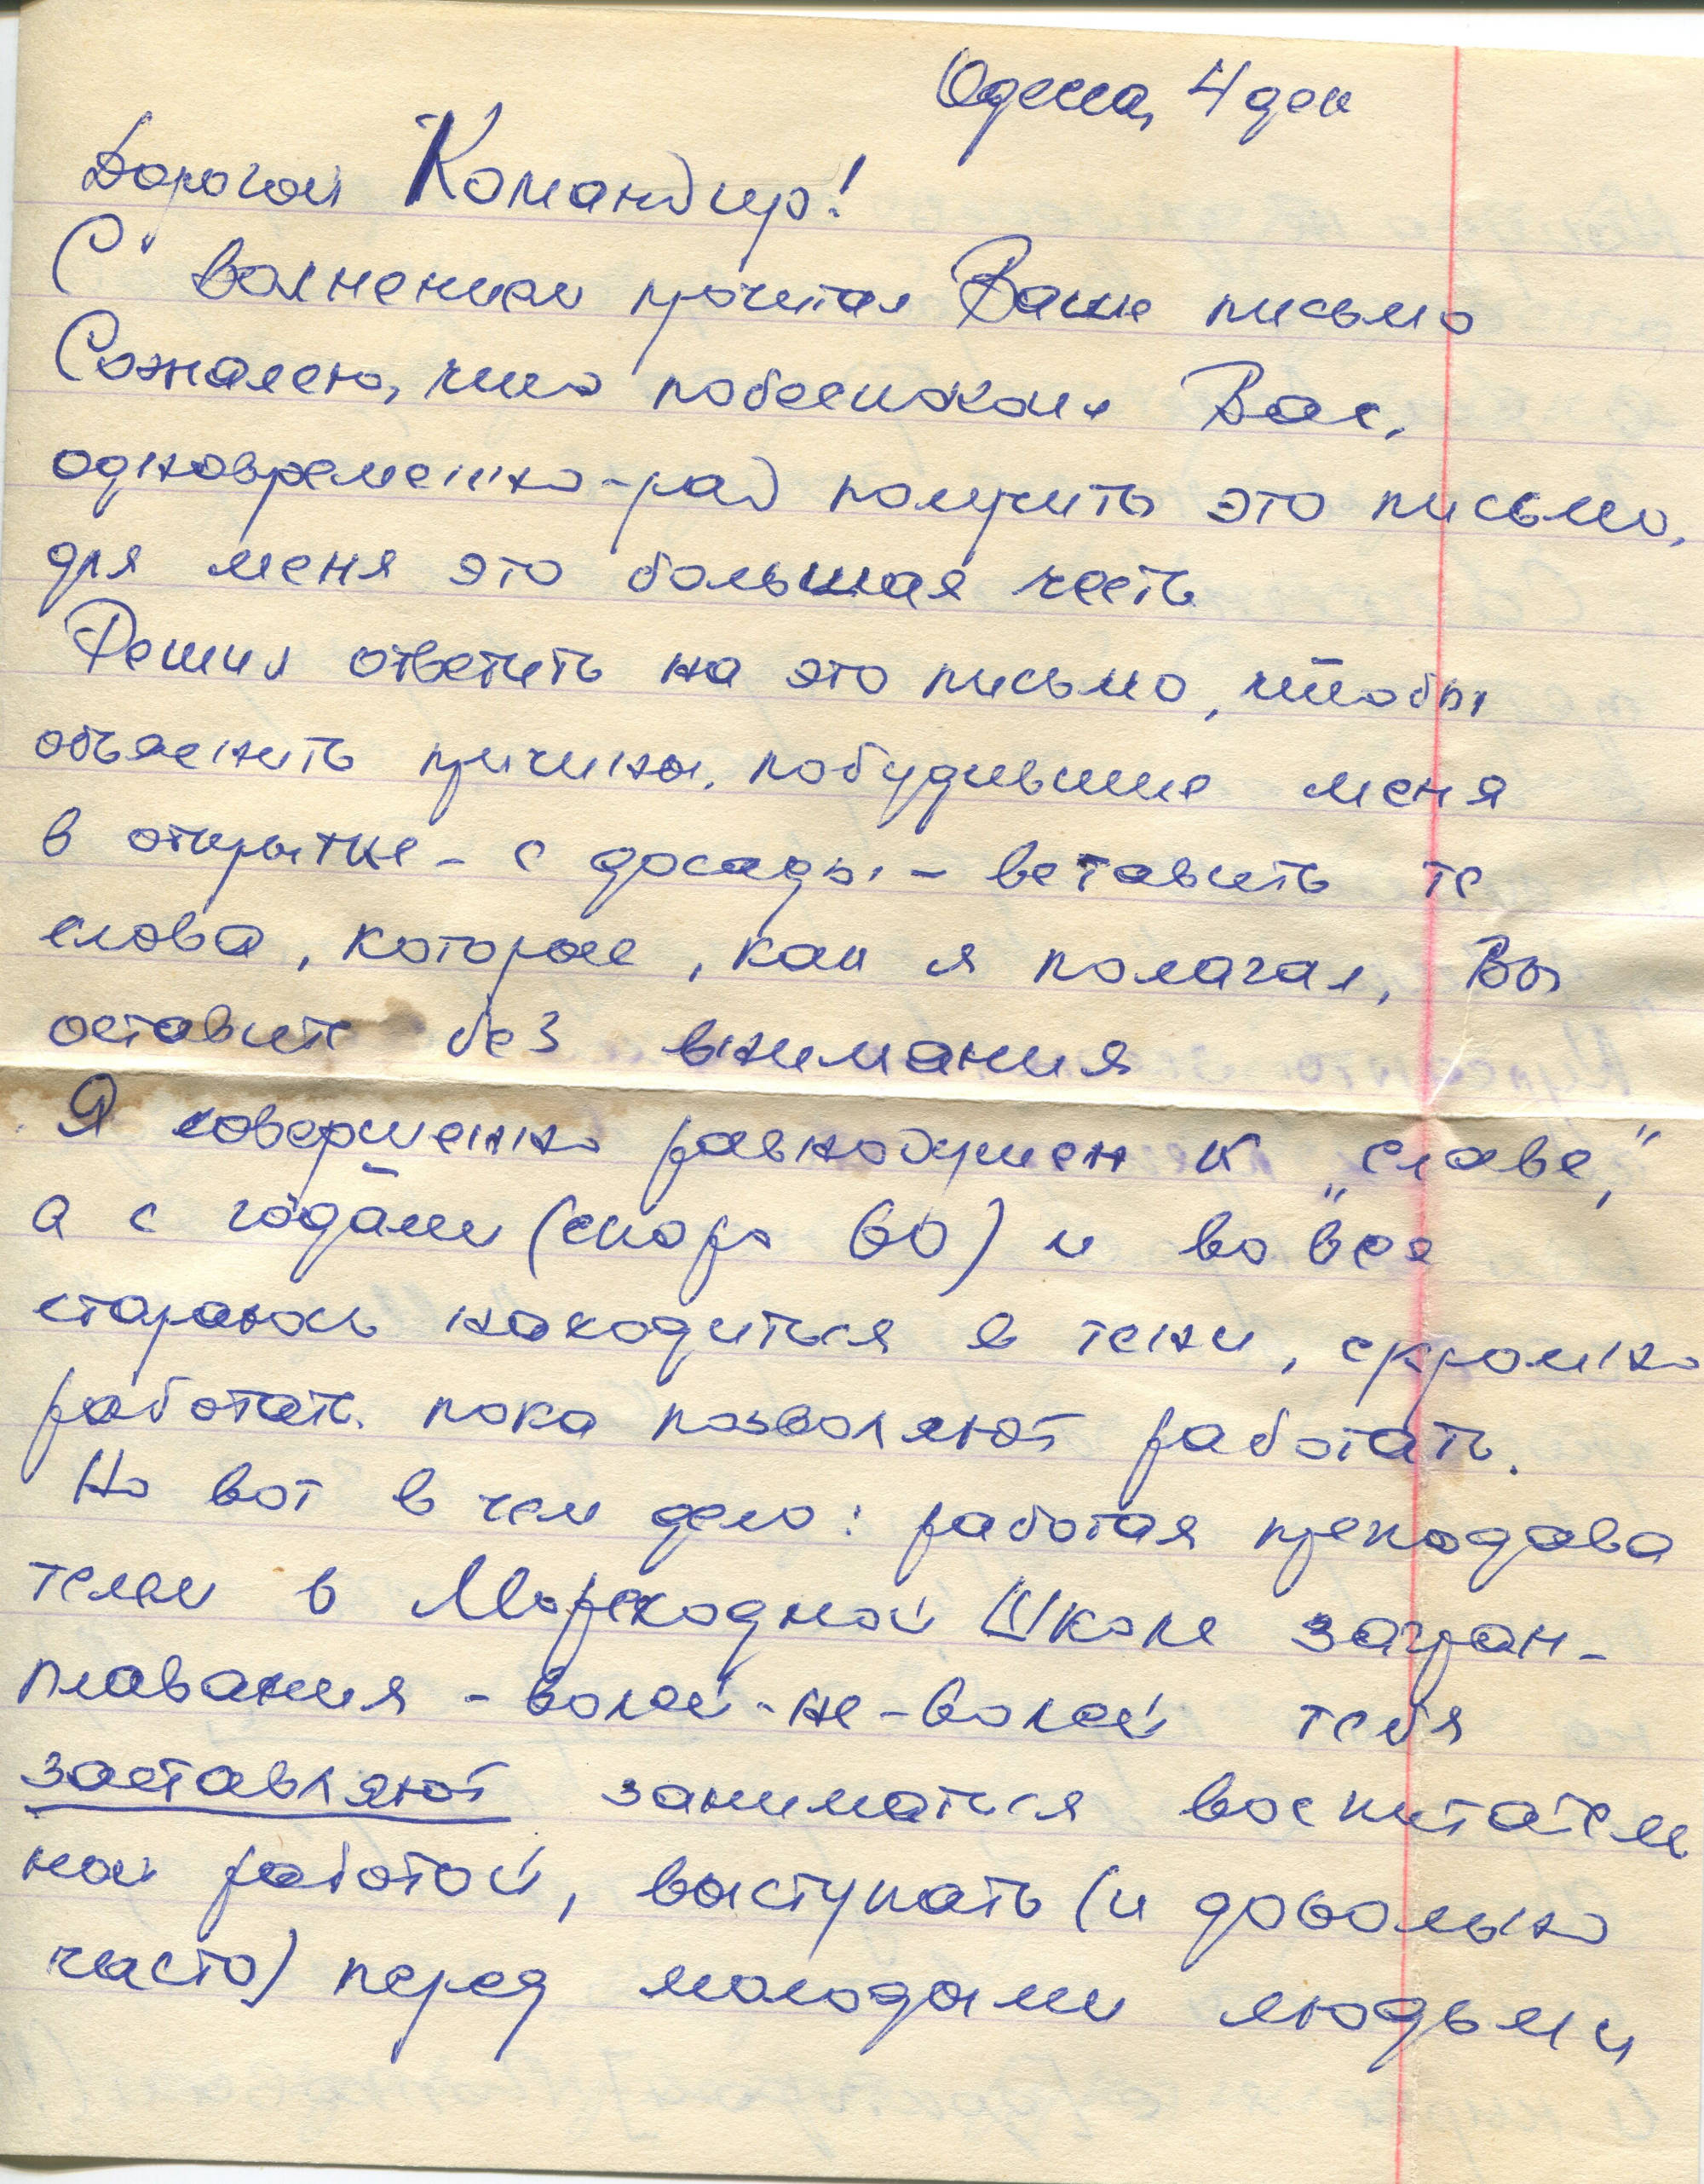 Одесса, 4 дек
Дорогой Командир!
С волнением прочитал Ваше письмо
Сожалею, что побеспокоил Вас,
одновременно-рад получить это письмо,
для меня это большая честь
Решил ответить на это письмо, чтобы
объяснить причины, побудившие меня
в открытке - с досады - вставить те
слова, которые, как я полагал, Вы
оставите без внимания
Я совершенно равнодушен к „славе",
а с годами (скоро 60) и во все
стараюсь находиться в тени, скромно
работать пока позволяют работать.
Но вот в чем дело: работая преподава
телем в Мореходной Школе загран-
плавания - волей-не-волей тебя
заставляют заниматься воспитатель
ной работой, выступать (и довольно
часто) перед молодыми людьми